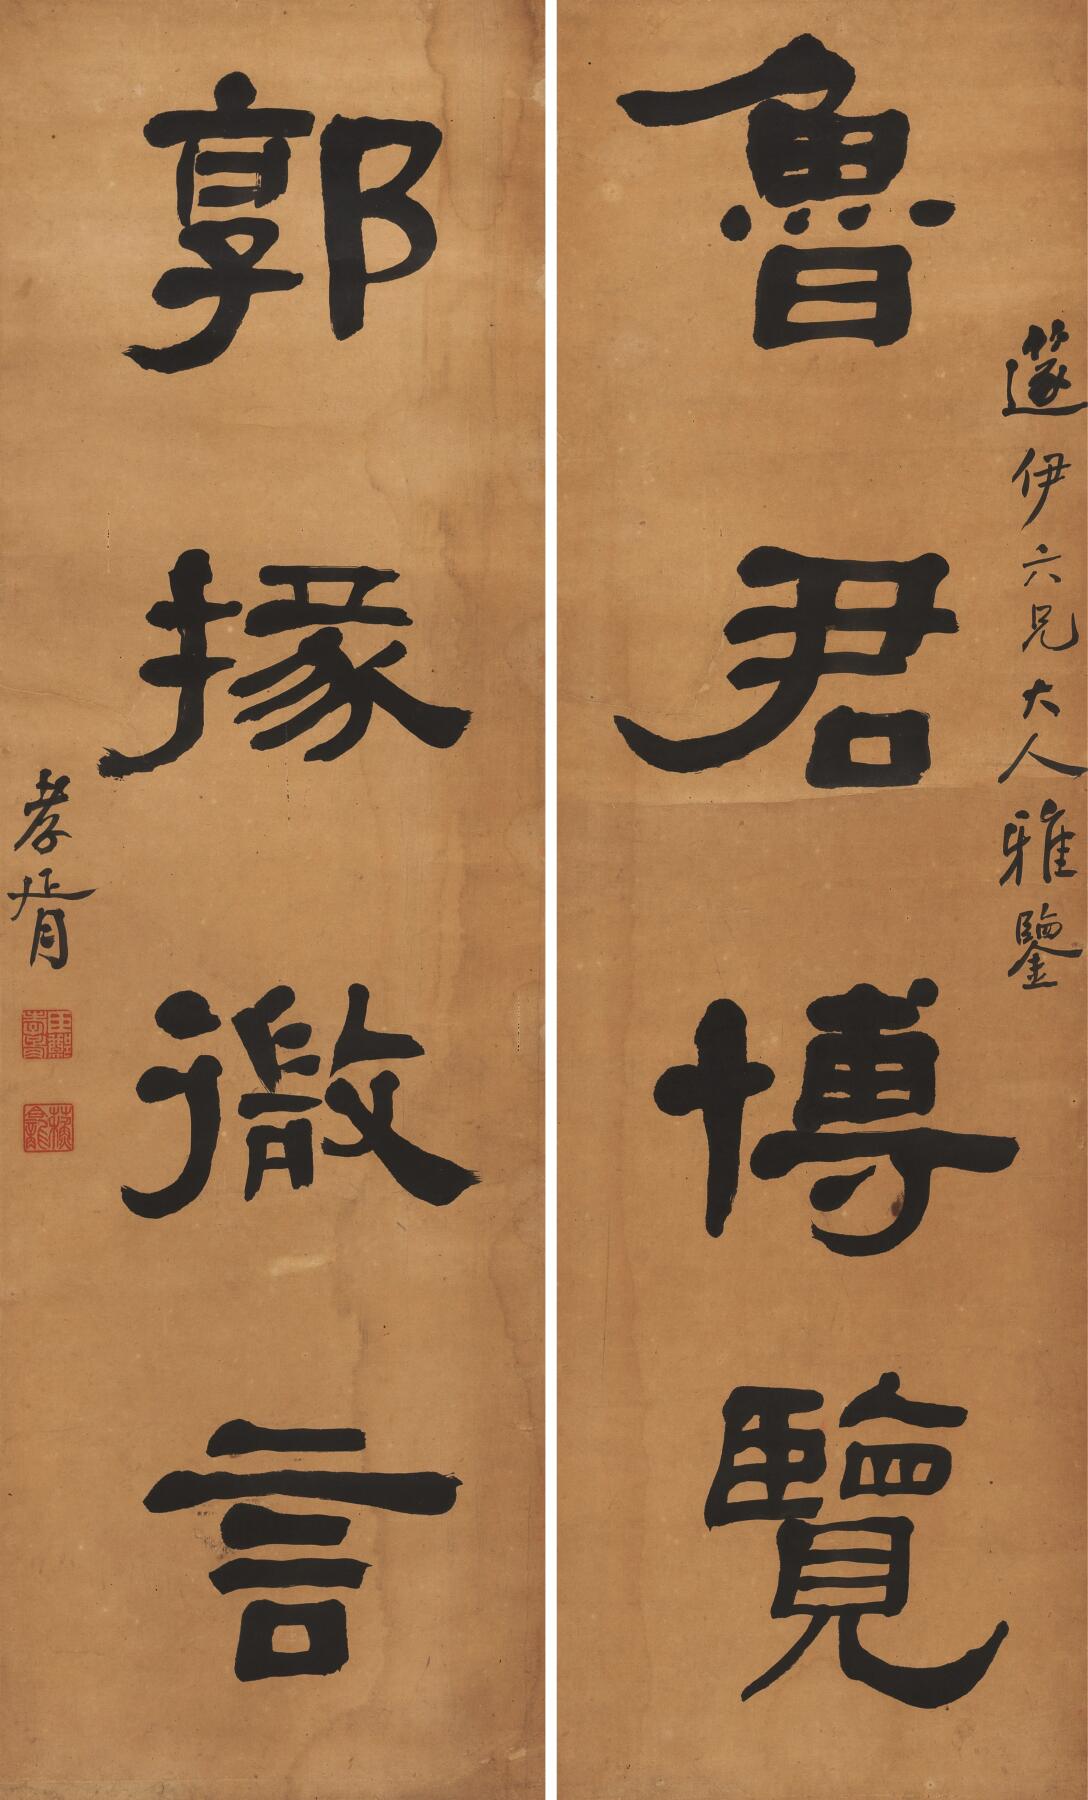 邃伊六兄大人雅鑒
魯君博覽
郭掾微言
孝胥